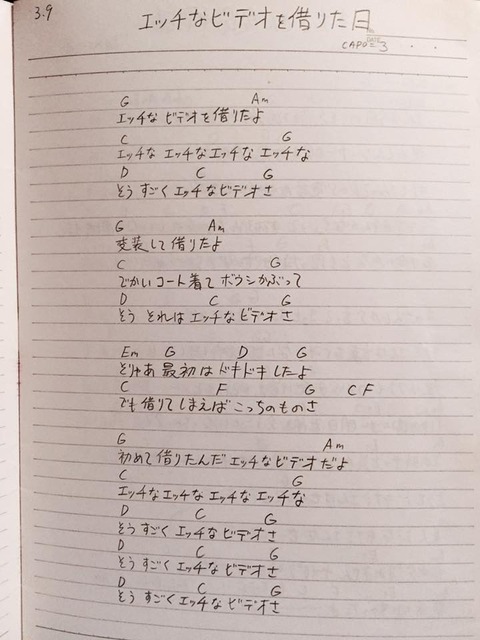 3.9
エッチなビデオを借りた日
DATE
CAPO=3
G Am
エッチな ビデオを借りたよ
C G
エッチな エッチな エッチな エッチな
D C G
そう すごく エッチなビデオさ
G Am
変装して 借りたよ
C G
でかいコート着て ボウシかぶって
D C G
そう それは エッチなビデオさ
Em G D G
そりゃあ 最初は ドキドキしたよ
C F G C F
でも 借りてしまえば こっちのものさ
G Am
初めて 借りたんだ エッチなビデオだよ
C G
エッチな エッチな エッチな エッチな
D C G
そう すごく エッチな ビデオさ
D C G
そう すごく エッチな ビデオさ
D C G
そう すごく エッチな ビデオさ